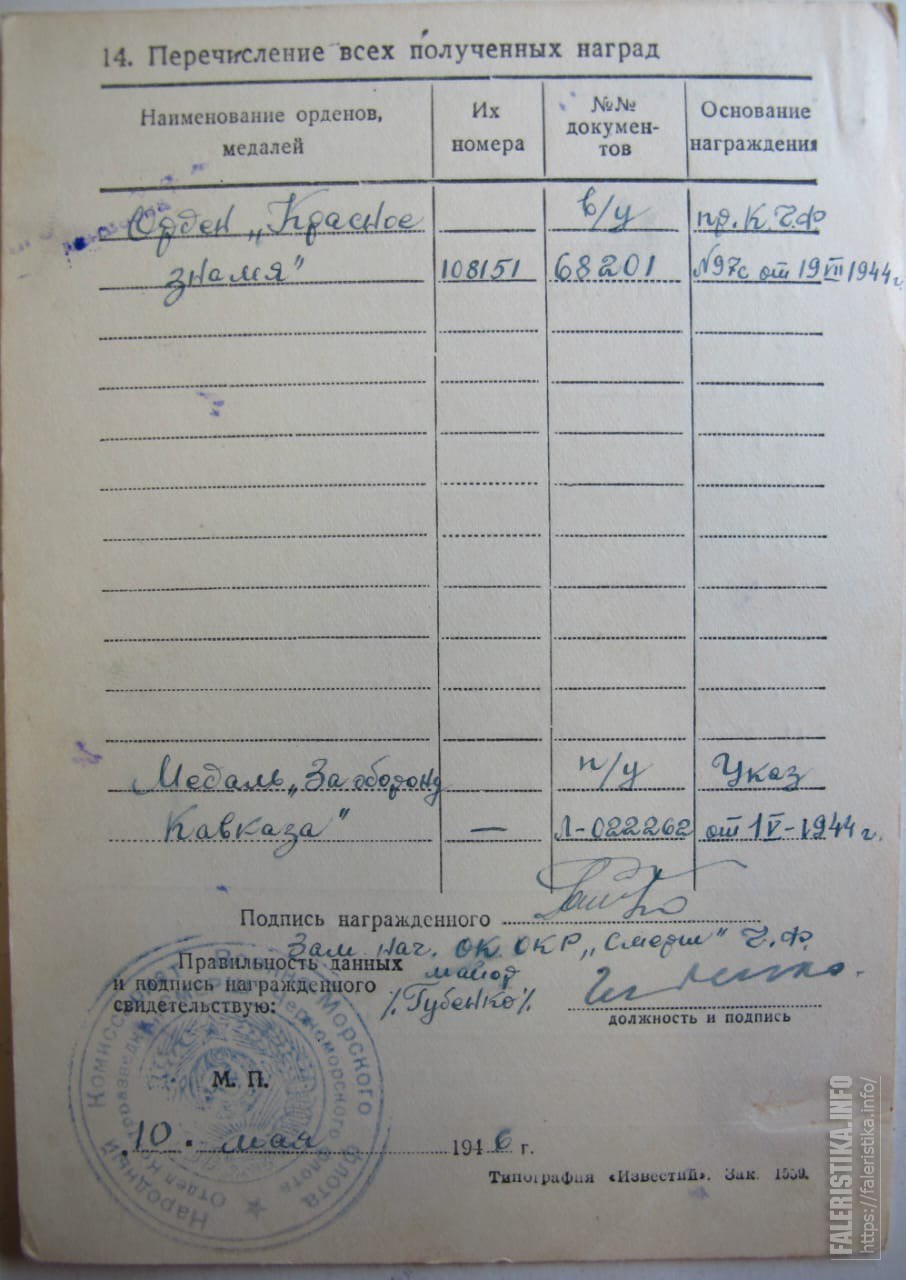 14. Перечисление всех полученных наград
Наименование орденов, медалей
Их номера
№№ докумен-тов
Основание награждения
Орден „Красное в/у пр. К.Ч.Ф.
знамя" 108151 68201 №97с от 19 VII 1944 г.
Медаль „За оборону п/у Указ
Кавказа" — Л-022262 от 1 V-1944 г.
Подпись награжденного
Зам. нач. ОК ОКР „Смерш" Ч.Ф.
Правильность данных майор
и подпись награжденного
свидетельствую: /.Губенко/.
должность и подпись
М. П.
10. мая 1946 г.
Типография «Известий». Зак. 1559.
Народный Комиссариат Военно-Морского Флота
Отдел Контрразведки Черноморского флота
FALERISTIKA.INFO
https://faleristika.info/